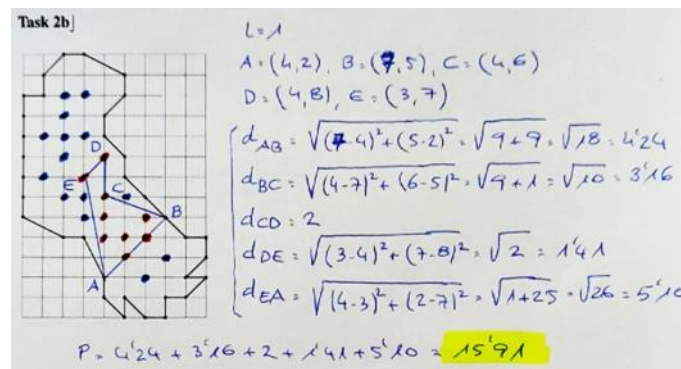 Task 2b]
L=1
A=(4,2), B=(7,5), C=(4,6)
D=(4,8), E=(3,7)
d_AB = √(7-4)²+(5-2)² = √9+9 = √18 = 4'24
d_BC = √(4-7)²+(6-5)² = √9+1 = √10 = 3'16
d_CD = 2
d_DE = √(3-4)²+(7-8)² = √2 = 1'41
d_EA = √(4-3)²+(2-7)² = √1+25 = √26 = 5'10
D
E
C
B
A
P = 4'24 + 3'16 + 2 + 1'41 + 5'10 = 15'91